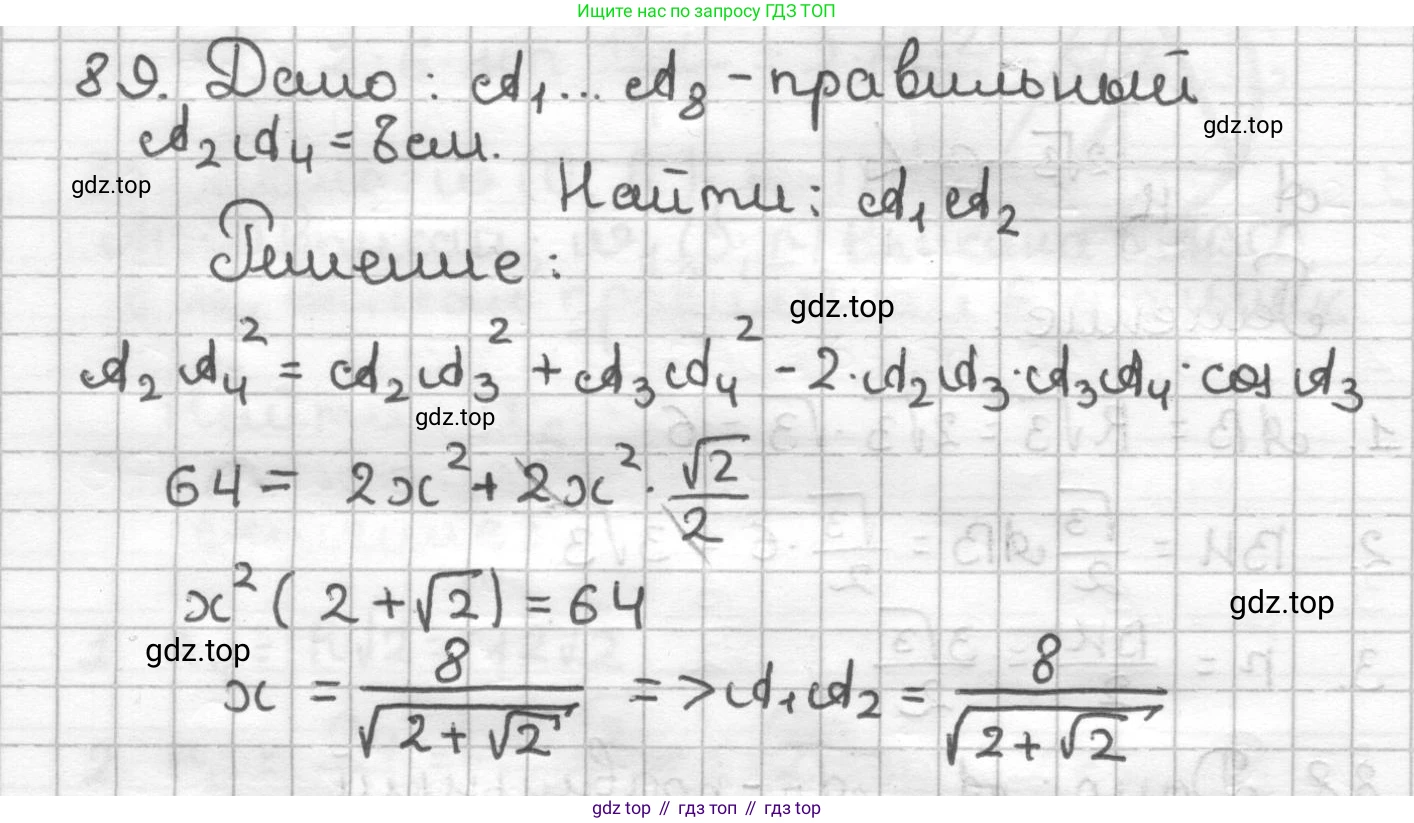 Ищите нас по запросу ГДЗ ТОП
89. Дано: A₁... A₈ - правильный
gdz.top
A₂A₄ = 8 см.
gdz.top
Найти: A₁A₂
Решение:
gdz.top
A₂A₄² = A₂A₃² + A₃A₄² - 2·A₂A₃·A₃A₄·cos A₃
gdz.top
64 = 2x² + 2x² · √2/2
x² (2 + √2) = 64
gdz.top
gdz.top
x = 8/√(2 + √2) => A₁A₂ = 8/√(2 + √2)
gdz top // гдз топ // gdz top